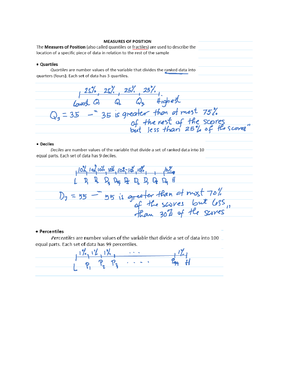 MEASURES OF POSITION
The Measures of Position (also called quantiles or fractiles) are used to describe the
location of a specific piece of data in relation to the rest of the sample
• Quartiles
Quartiles are number values of the variable that divides the ranked data into
quarters (fours). Each set of data has 3 quartiles.
25% 25% 25% 25%
Lowest Q1 Q2 Q3 Highest
Q3 = 35 — "35 is greater than at most 75%
of the rest of the scores
but less than 25% of the scores"
• Deciles
Deciles are number values of the variable that divide a set of ranked data into 10
equal parts. Each set of data has 9 deciles.
10% 10% 10% 10% 10% 10%
L D1 D2 D3 D4 D5 D6 D7 D8 D9 H
D7 = 55 — "55 is greater than at most 70%
of the scores but less
than 30% of the scores"
• Percentiles
Percentiles are number values of the variable that divide a set of data into 100
equal parts. Each set of data has 99 percentiles.
1% 1% 1% 1%
L P1 P2 P3 . . . . P99 H